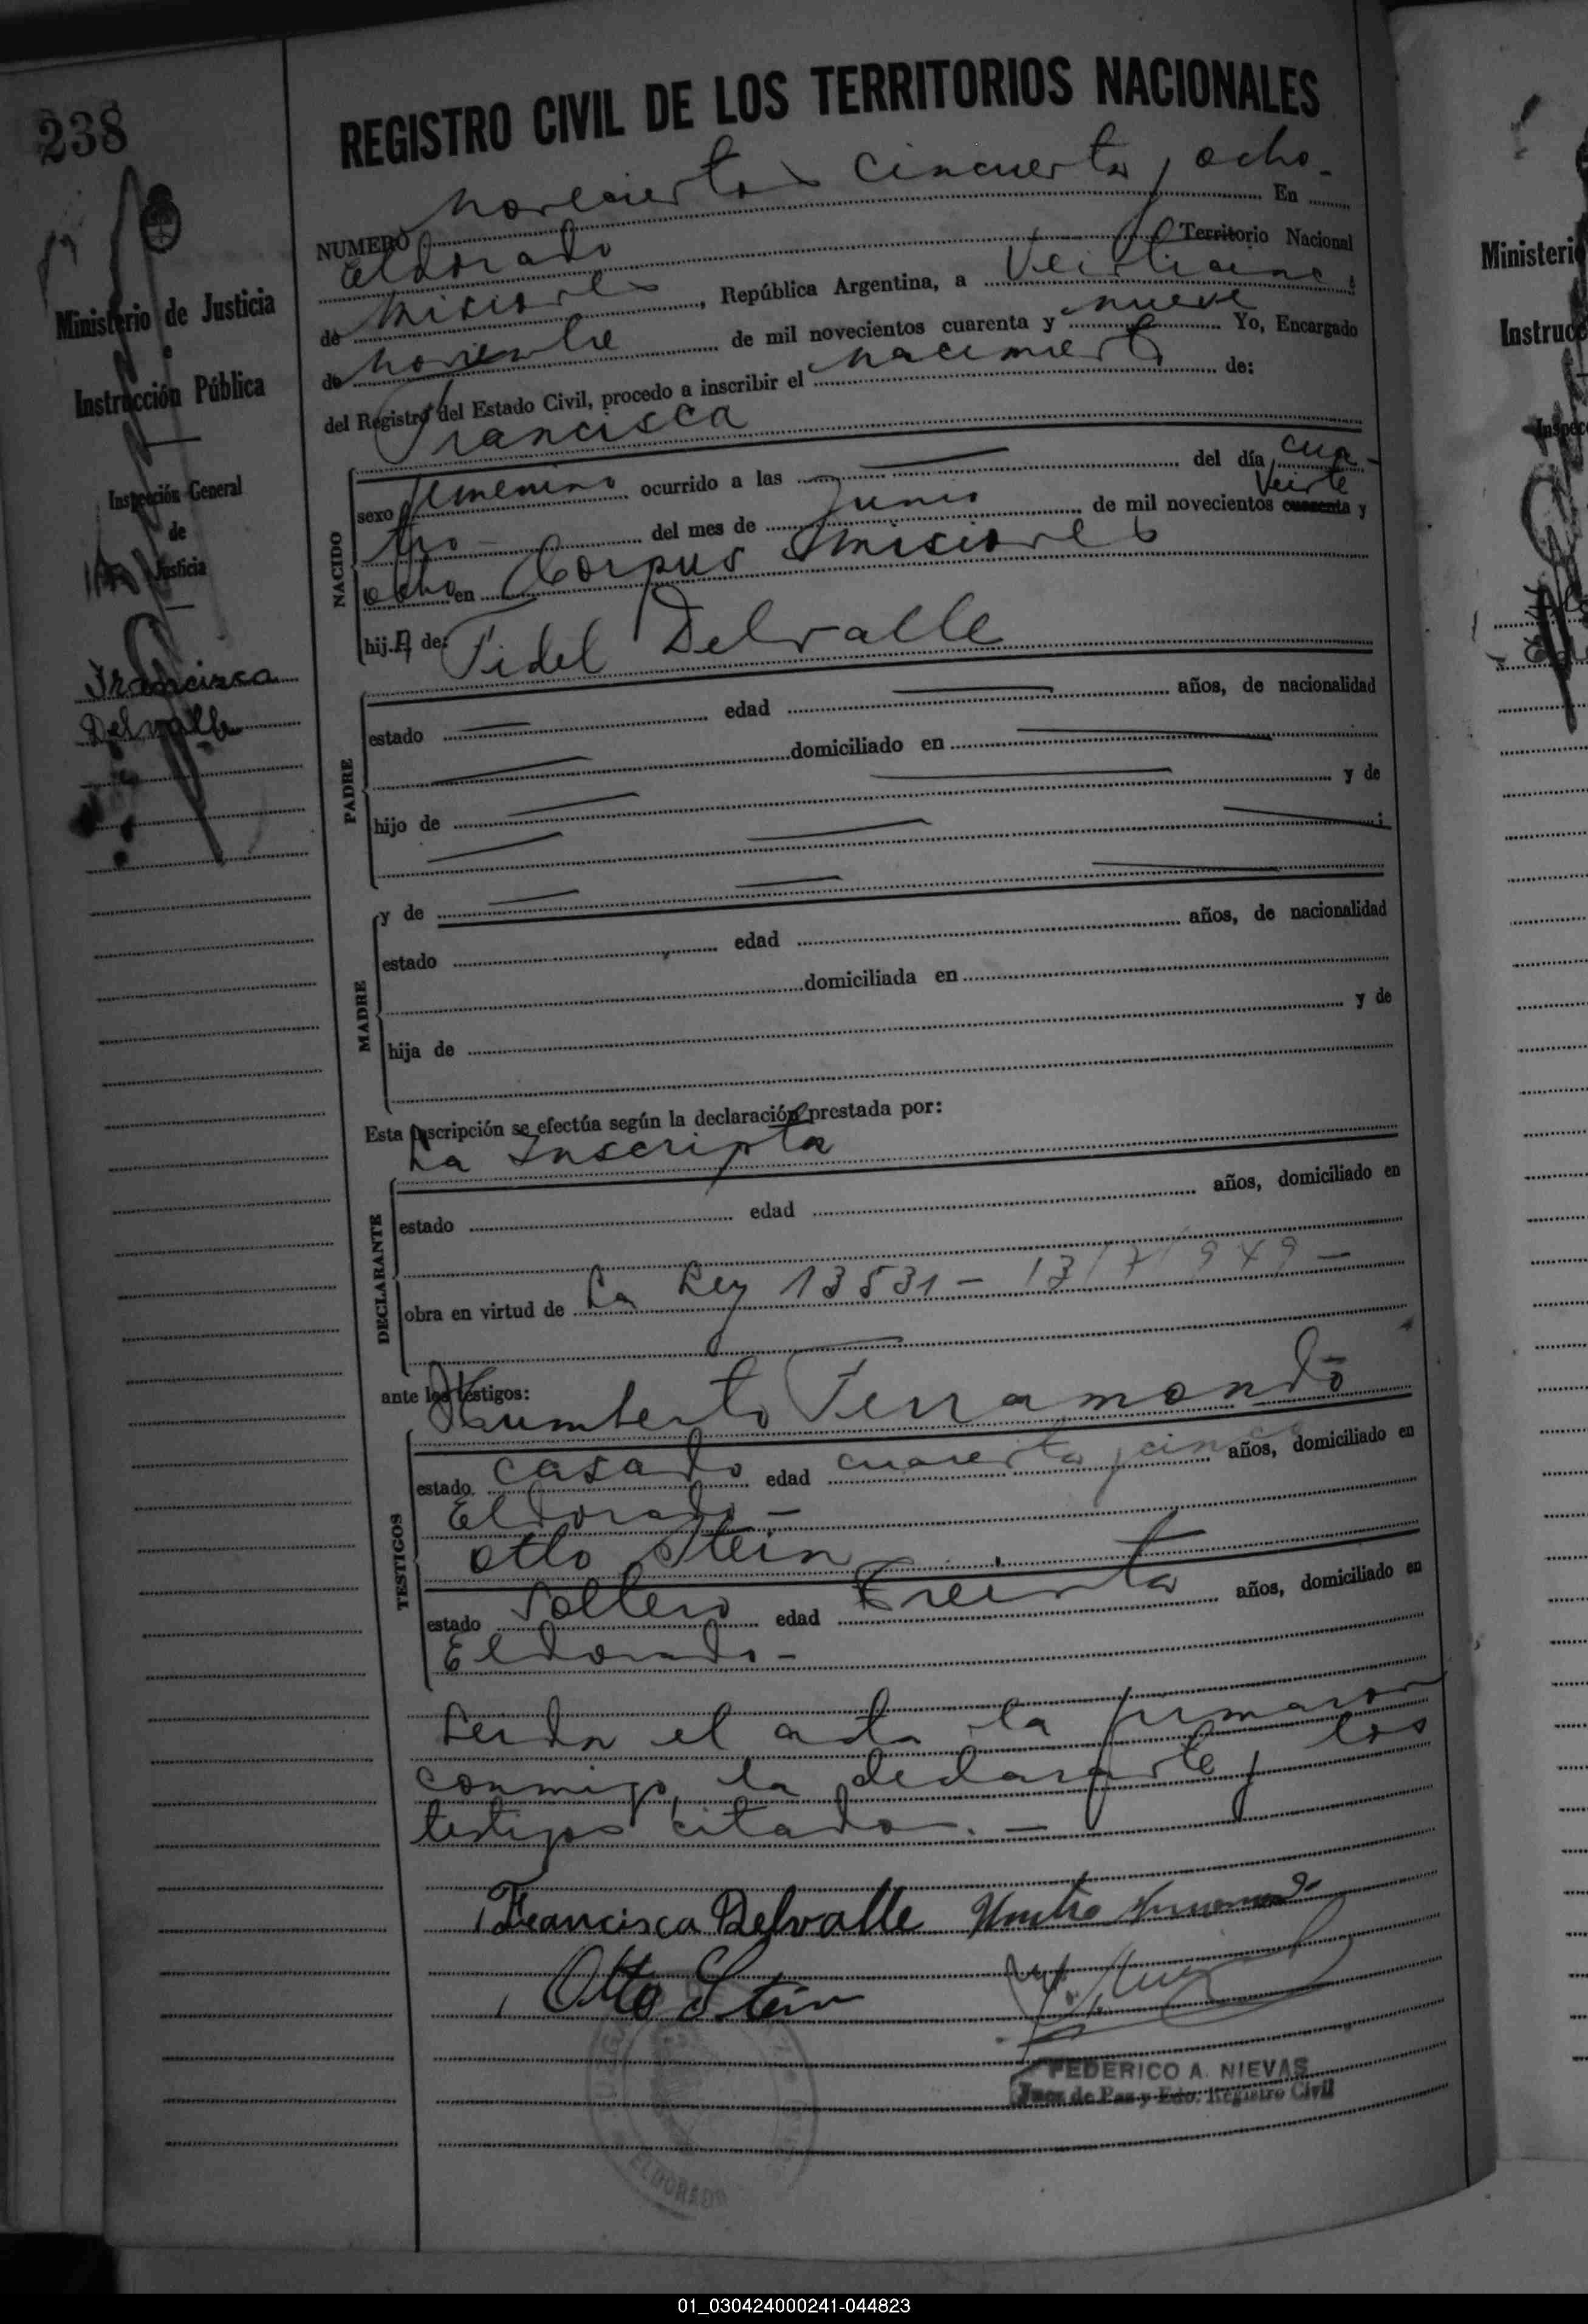 238
REGISTRO CIVIL DE LOS TERRITORIOS NACIONALES
NUMERO novecientos cincuenta y ocho - En
Eldorado Territorio Nacional
de Misiones, República Argentina, a Veinticinco
de noviembre de mil novecientos cuarenta y nueve Yo, Encargado
del Registro del Estado Civil, procedo a inscribir el nacimiento de:
Francisca
NACIDO
sexo femenino ocurrido a las del día cua-
tro del mes de Junio de mil novecientos cuarenta y
Veinte
ocho en Corpus Misiones
hij.a de: Fidel Delvalle
PADRE
estado edad años, de nacionalidad
domiciliado en
hijo de y de
;
y de
MADRE
estado edad años, de nacionalidad
domiciliada en
hija de y de
Esta inscripción se efectúa según la declaración prestada por:
La Inscripta
DECLARANTE
estado edad años, domiciliado en
obra en virtud de La Ley 13531 - 13/7/949 -
ante los testigos:
Humberto Ferramondo
TESTIGOS
estado casado edad cuarenta y cinco años, domiciliado en
Eldorado -
Otto Stein
estado Soltero edad Treinta años, domiciliado en
Eldorado -
Leida el acta la firmaron
conmigo, la declarante y los
testigos citados. -
Francisca Delvalle
Otto Stein
FEDERICO A. NIEVAS
Juez de Paz y Edo. Registro Civil
ELDORADO
Ministerio de Justicia
Instrucción Pública
Inspección General
de
Justicia
Francisca
Delvalle
Ministeri
Instruc
Inspec
01_030424000241-044823